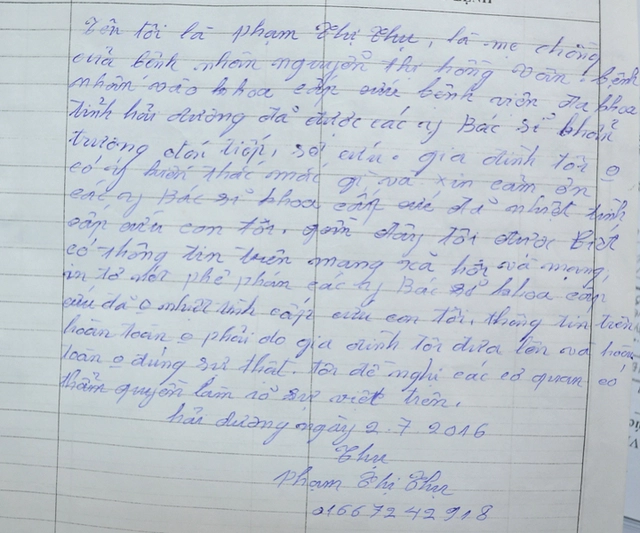 ỆNH
Tên tôi là phạm Thị Thự, là mẹ chồng
của bệnh nhân nguyễn thị hồng vân. bệnh
nhân vào khoa cấp cứu bệnh viện đa khoa
tỉnh hải dương đã được các y Bác sĩ khẩn
trương đón tiếp, sơ cứu. gia đình tôi o
có ý kiến thắc mắc gì và xin cảm ơn
các y Bác sĩ khoa cấp cứu đã nhiệt tình
cấp cứu con tôi. gần đây tôi được biết
có thông tin trên mạng xã hội và mạng
in tơ nét phê phán các y Bác sĩ khoa cấp
cứu đã o nhiệt tình cấp cứu con tôi. thông tin trên
hoàn toàn o phải do gia đình tôi đưa lên và hoàn
toàn o đúng sự thật. tôi đề nghị các cơ quan có
thẩm quyền làm rõ sự việt trên.
hải dương ngày 2.7 2016
Thự
phạm Thị Thự
01667242918